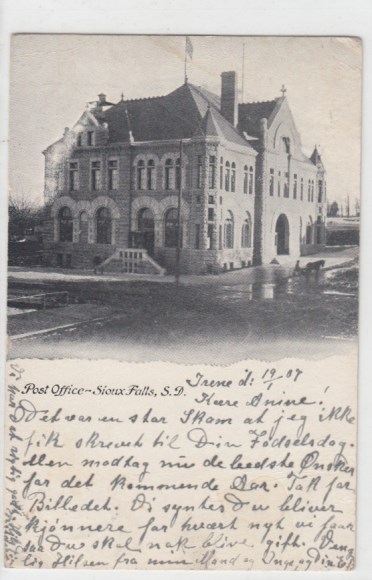 Post Office—Sioux Falls, S.D.
Irene d: 19/1 07
Kære Onine!
Det var en stor Skam at jeg ikke
fik skrevet til Din Fødselsdag.
Men modtag nu de bedste Ønsker
for det kommende Aar. Tak for
Billedet. Vi syntes du bliver
kjønnere for hvært nyt vi faar
saa du skal nok blive gift.
Hilsen fra min Mand og